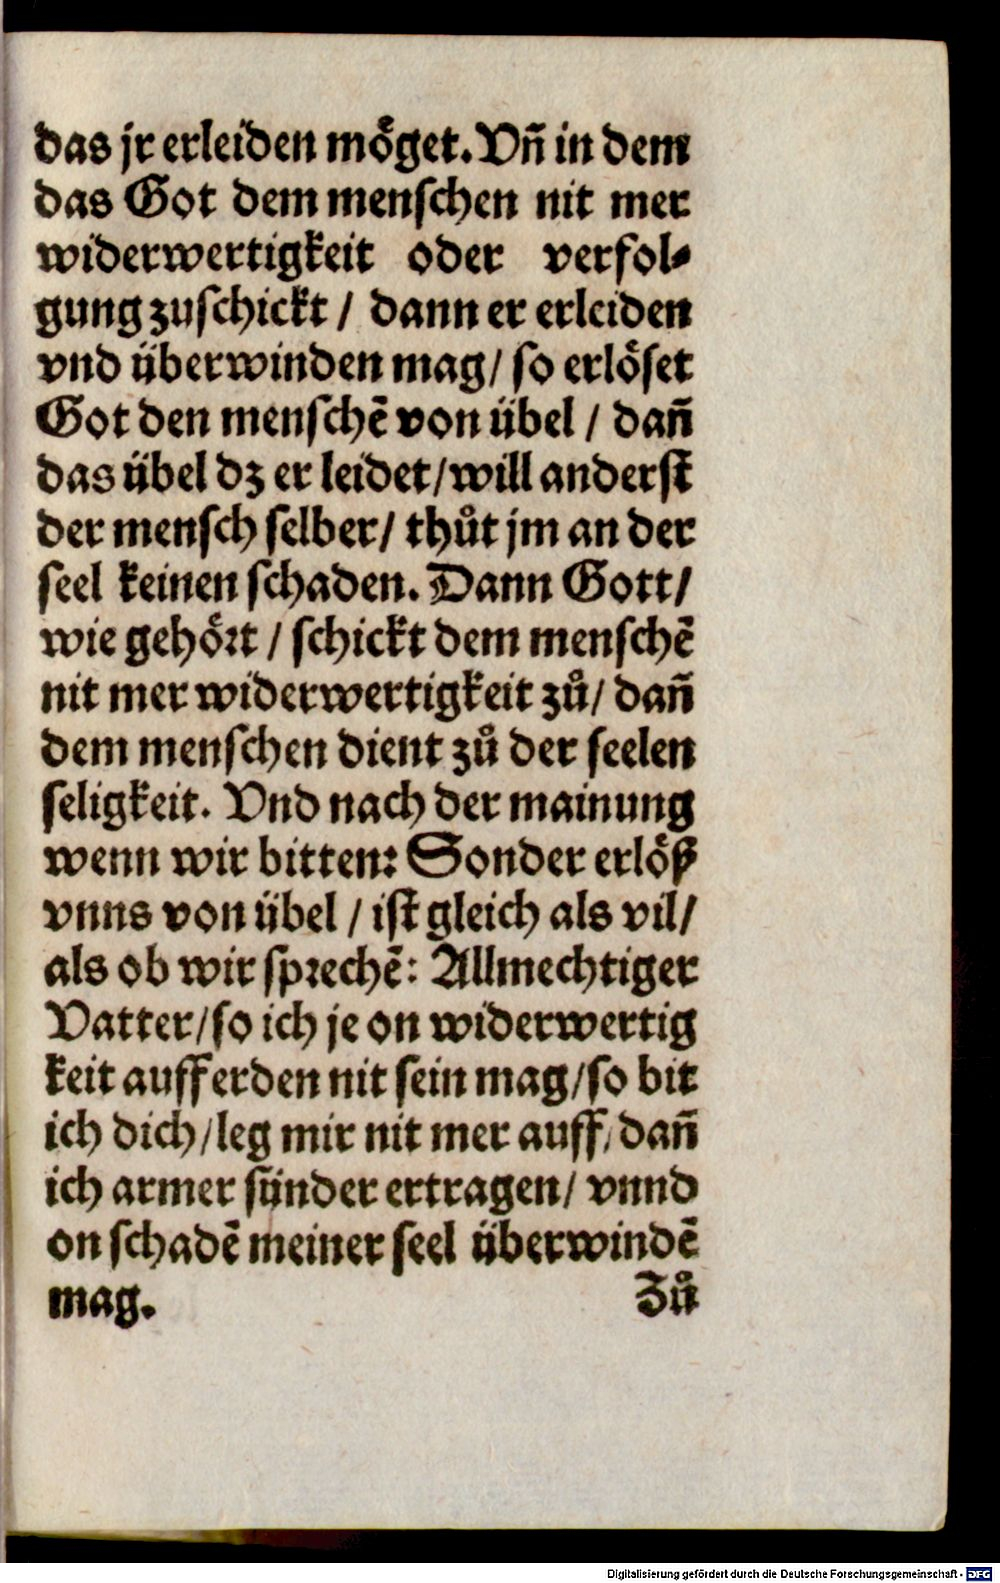 das jr erleiden möget. Vñ in dem
das Got dem menschen nit mer
widerwertigkeit oder verfol⸗
gung zuschickt / dann er erleiden
vnd überwinden mag / so erlöset
Got den menschẽ von übel / dañ
das übel dz er leidet / will anderst
der mensch selber / thůt jm an der
seel keinen schaden. Dann Gott /
wie gehört / schickt dem menschẽ
nit mer widerwertigkeit zů / dañ
dem menschen dient zů der seelen
seligkeit. Vnd nach der mainung
wenn wir bitten: Sonder erlöß
vnns von übel / ist gleich als vil /
als ob wir sprechẽ: Allmechtiger
Vatter / so ich je on widerwertig
keit auff erden nit sein mag / so bit
ich dich / leg mir nit mer auff / dañ
ich armer sünder ertragen / vnnd
on schadẽ meiner seel überwindẽ
mag. Zů
Digitalisierung gefördert durch die Deutsche Forschungsgemeinschaft - DFG